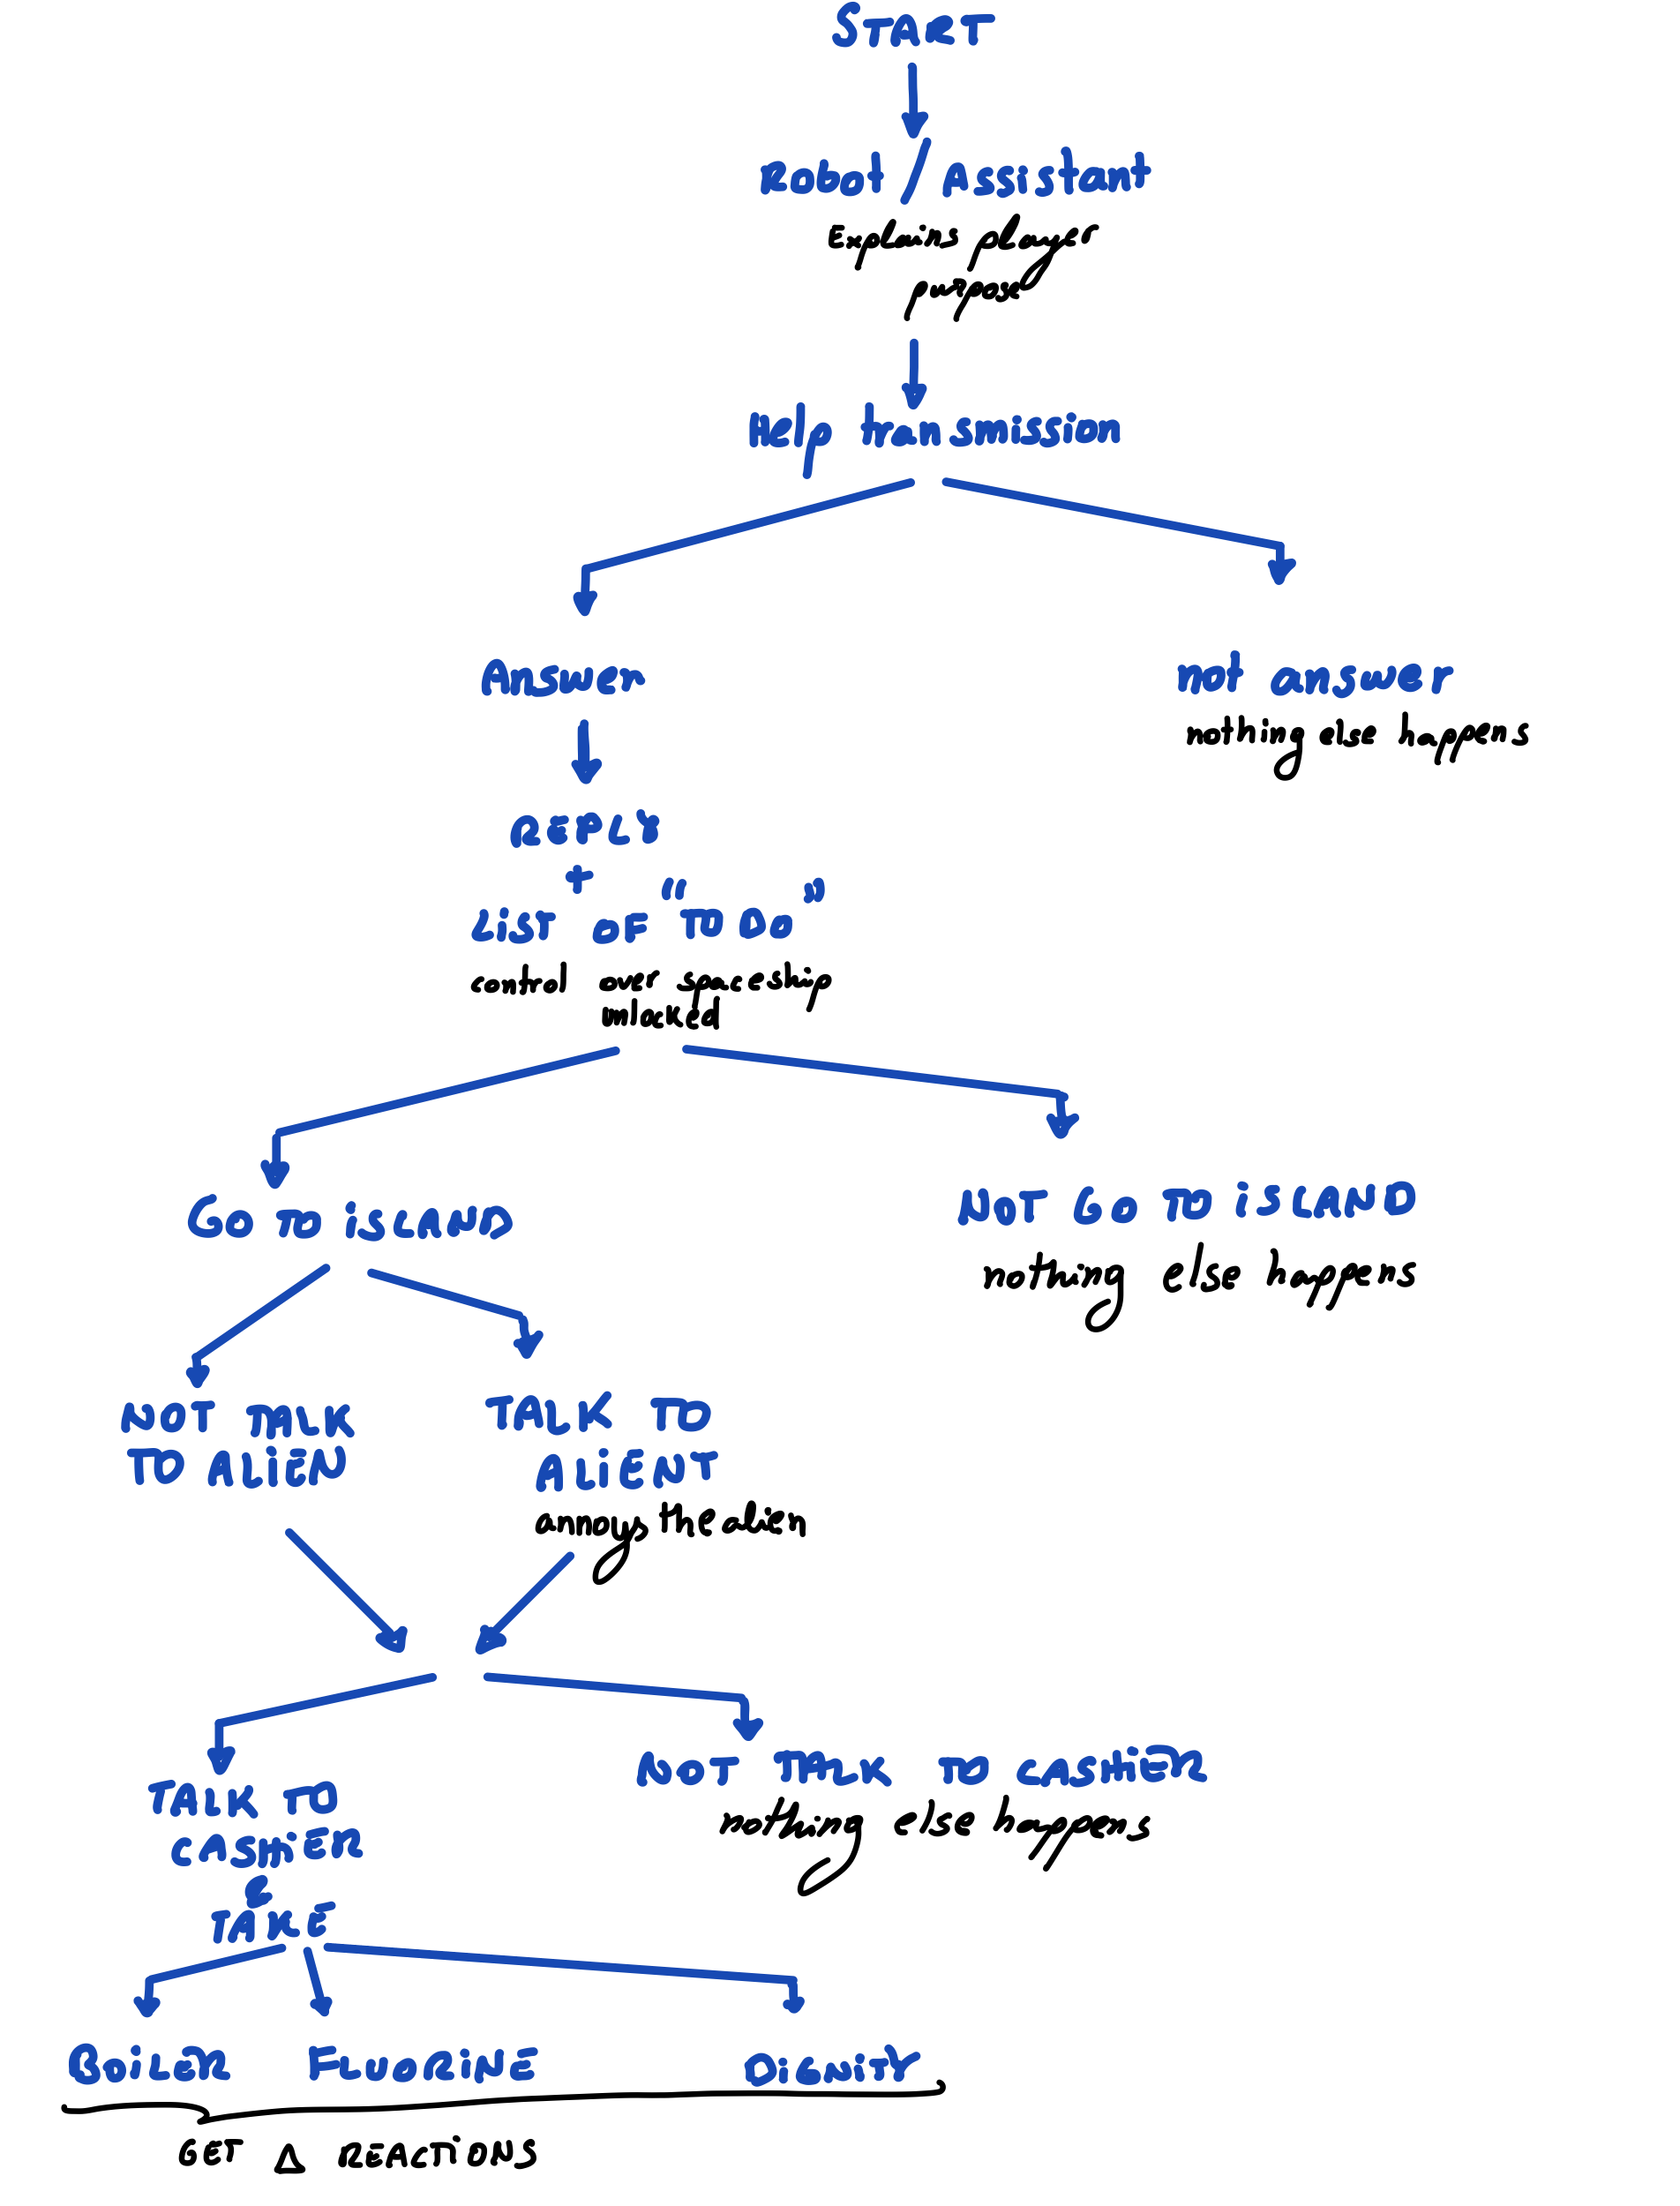 START
Robot / Assistant
Explains player
purpose
Help transmission
Answer
not answer
nothing else happens
REPLY
+
LiST OF "TO DO"
control over spaceship
unlocked
GO TO iSLAND
NOT GO TO iSLAND
nothing else happens
NOT TALK
TO ALiEN
TALK TO
ALiENT
annoys the alien
TALK TO
CASHiER
&
TAKE
NOT TALK TO CASHiER
nothing else happens
BOiLER FLUORiNE DiGNiTY
GET Δ REACTiONS